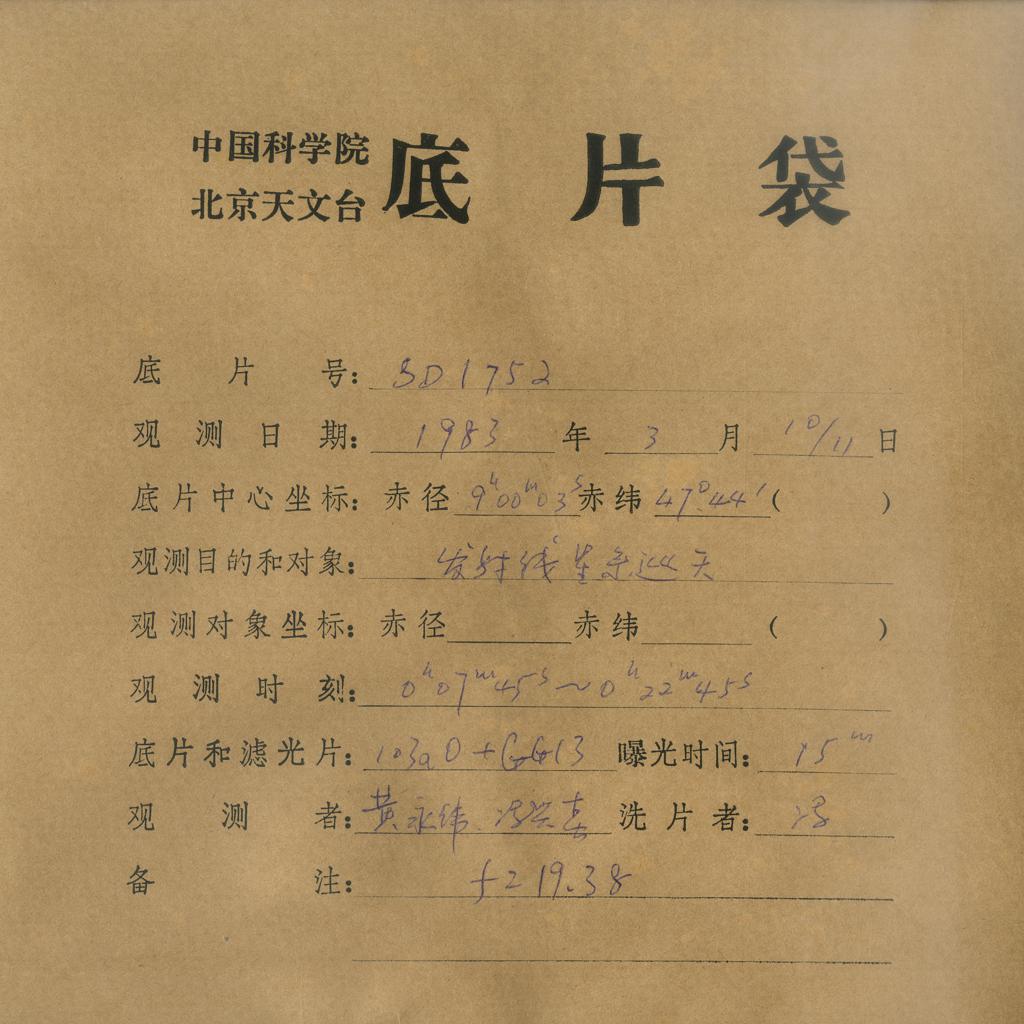 中国科学院
北京天文台
底片袋
底片号: BD1752
观测日期: 1983年3月10/11日
底片中心坐标: 赤径 9h00m03s 赤纬 47°44′( )
观测目的和对象: 发射线星系巡天
观测对象坐标: 赤径 赤纬 ( )
观测时刻: 0h07m45s~0h22m45s
底片和滤光片: 103aO+GG13 曝光时间: 15m
观测者: 黄永纬、 洗片者: 冯
备注: f=19.38